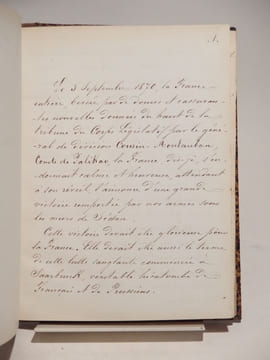 1.
Le 3 Septembre 1870, la France
entière, bercée par de douces et rassuran-
tes nouvelles données du haut de la
tribune du Corps Législatif par le géné-
ral de division Cousin-Montauban,
Comte de Palikao, la France dis-je, s'en-
dormait calme et heureuse, attendant
à son réveil l'annonce d'une grande
victoire remportée par nos armes sous
les murs de Sédan.
Cette victoire devait être glorieuse pour
la France. Elle devait être aussi le terme
de cette lutte sanglante commencée à
Saarbruck, véritable hécatombe de
Français et de Prussiens.